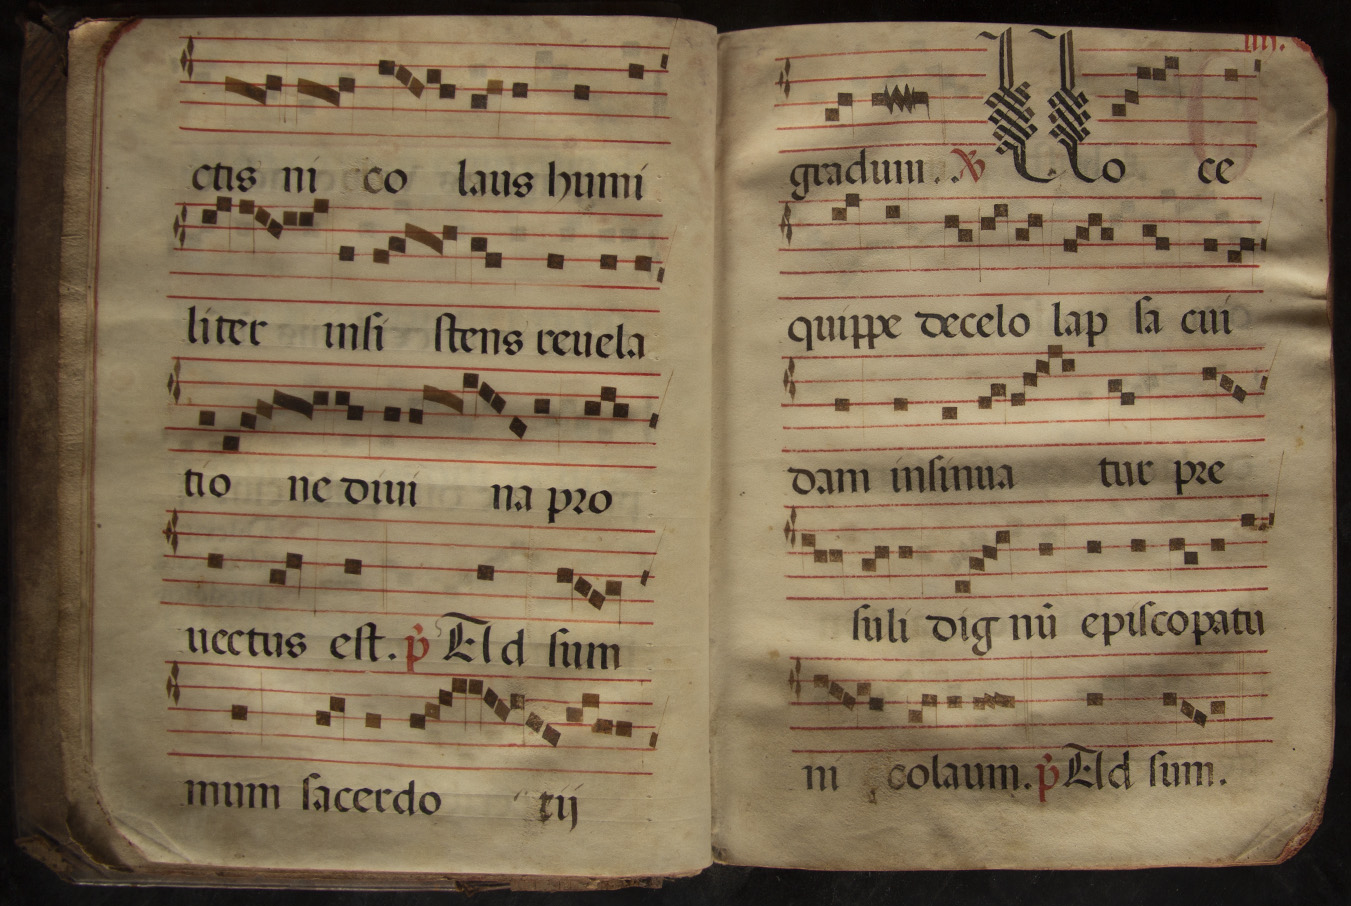 ctis ni co laus humi
liter insi stens reuela
tio ne diui na pro
uectus est. p̃ Ad sum
mum sacerdo tij
iiij.
gradum. ℣ Uo ce
quippe decelo lap sa cui
dam insinua tur pre
suli dignū episcopatu
ni colaum. p̃ Ad sum.